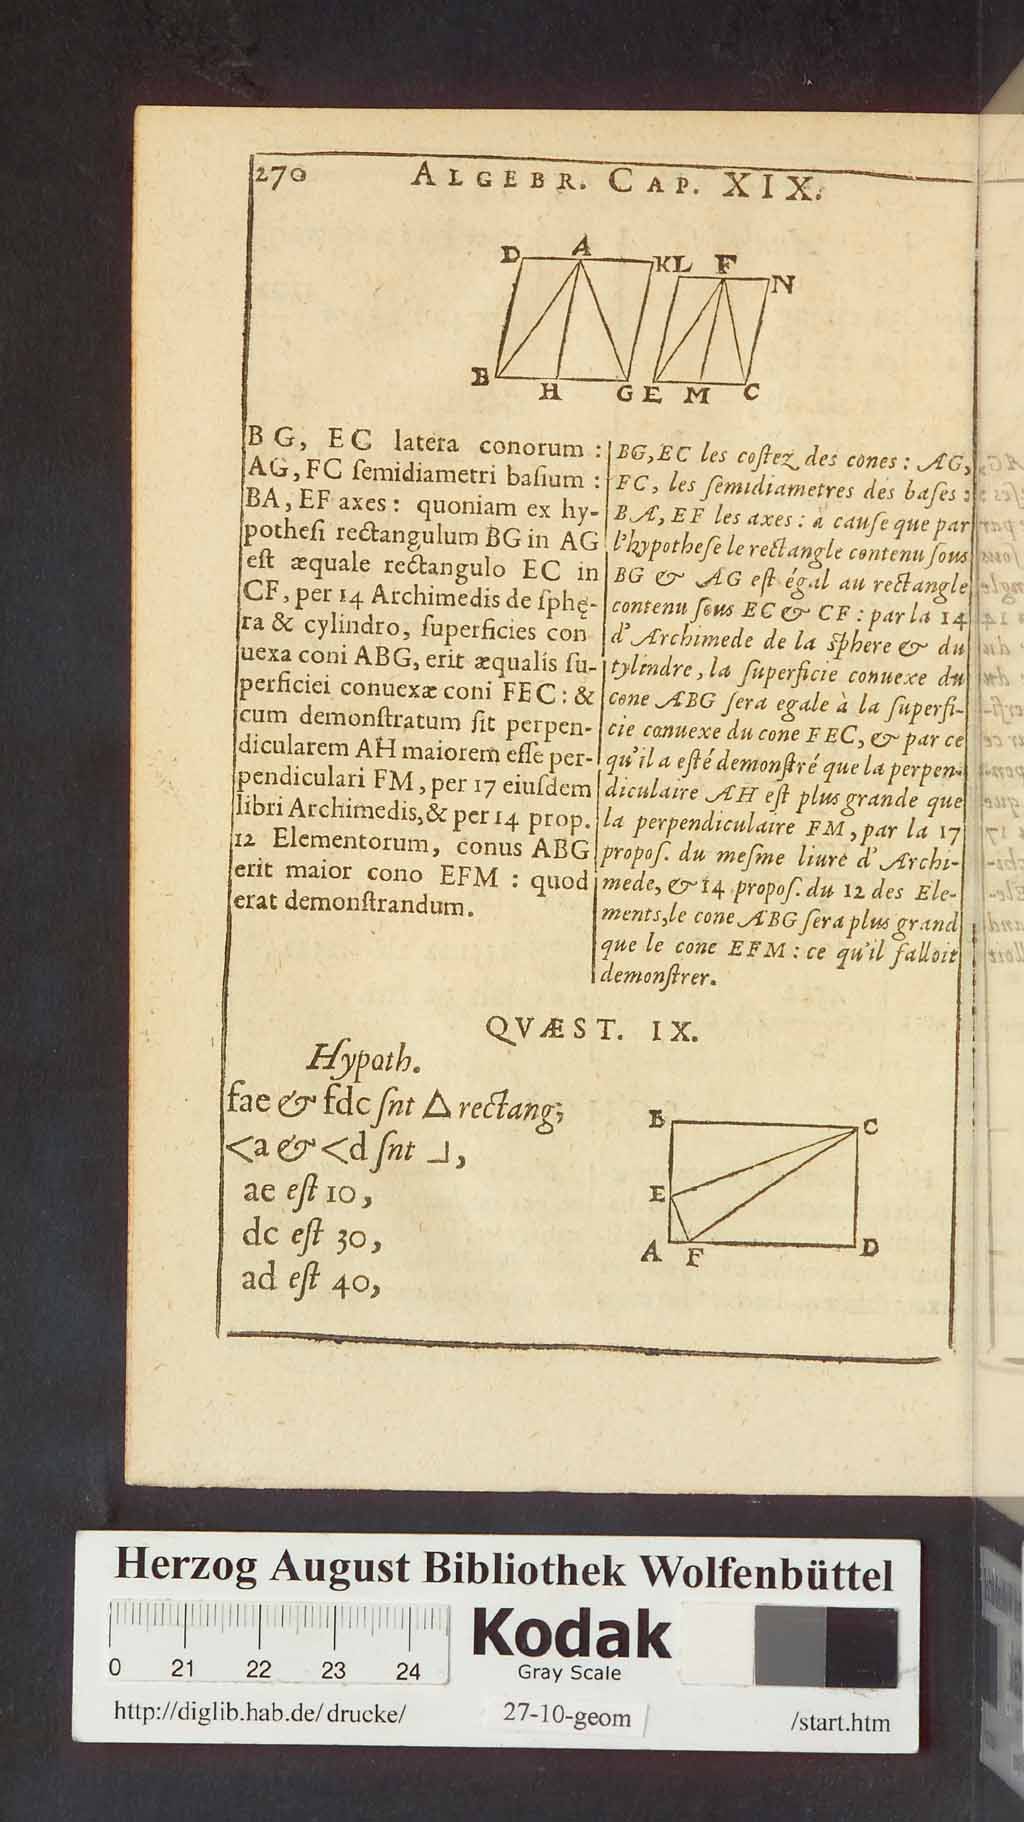 270 ALGEBR. CAP. XIX.
D A K L F N
B H G E M C
BG, EC latera conorum :
AG, FC ſemidiametri baſium :
BA, EF axes : quoniam ex hy-
potheſi rectangulum BG in AG
eſt æquale rectangulo EC in
CF, per 14 Archimedis de ſphę-
ra & cylindro, ſuperficies con
uexa coni ABG, erit æqualis ſu-
perficiei conuexæ coni FEC : &
cum demonſtratum ſit perpen-
dicularem AH maiorem eſſe per-
pendiculari FM, per 17 eiuſdem
libri Archimedis, & per 14 prop.
12 Elementorum, conus ABG
erit maior cono EFM : quod
erat demonſtrandum.
BG, EC les coſtez des cones : AG,
FC, les ſemidiametres des baſes :
BA, EF les axes : à cauſe que par
l'hypotheſe le rectangle contenu ſous
BG & AG eſt égal au rectangle
contenu ſous EC & CF : par la 14
d'Archimede de la ſphere & du
tylindre, la ſuperficie conuexe du
cone ABG ſera egale à la ſuperfi-
cie conuexe du cone FEC, & par ce
qu'il a eſté demonſtré que la perpen-
diculaire AH eſt plus grande que
la perpendiculaire FM, par la 17
propoſ. du meſme liure d'Archi-
mede, & 14 propoſ. du 12 des Ele-
ments, le cone ABG ſera plus grand
que le cone EFM : ce qu'il falloit
demonſtrer.
QVÆST. IX.
Hypoth.
fae & fdc ſnt △ rectang;
<a & <d ſnt ⅃,
ae eſt 10,
dc eſt 30,
ad eſt 40,
B C
E
A F D
Herzog August Bibliothek Wolfenbüttel
0 21 22 23 24
Kodak
Gray Scale
http://diglib.hab.de/drucke/ 27-10-geom /start.htm